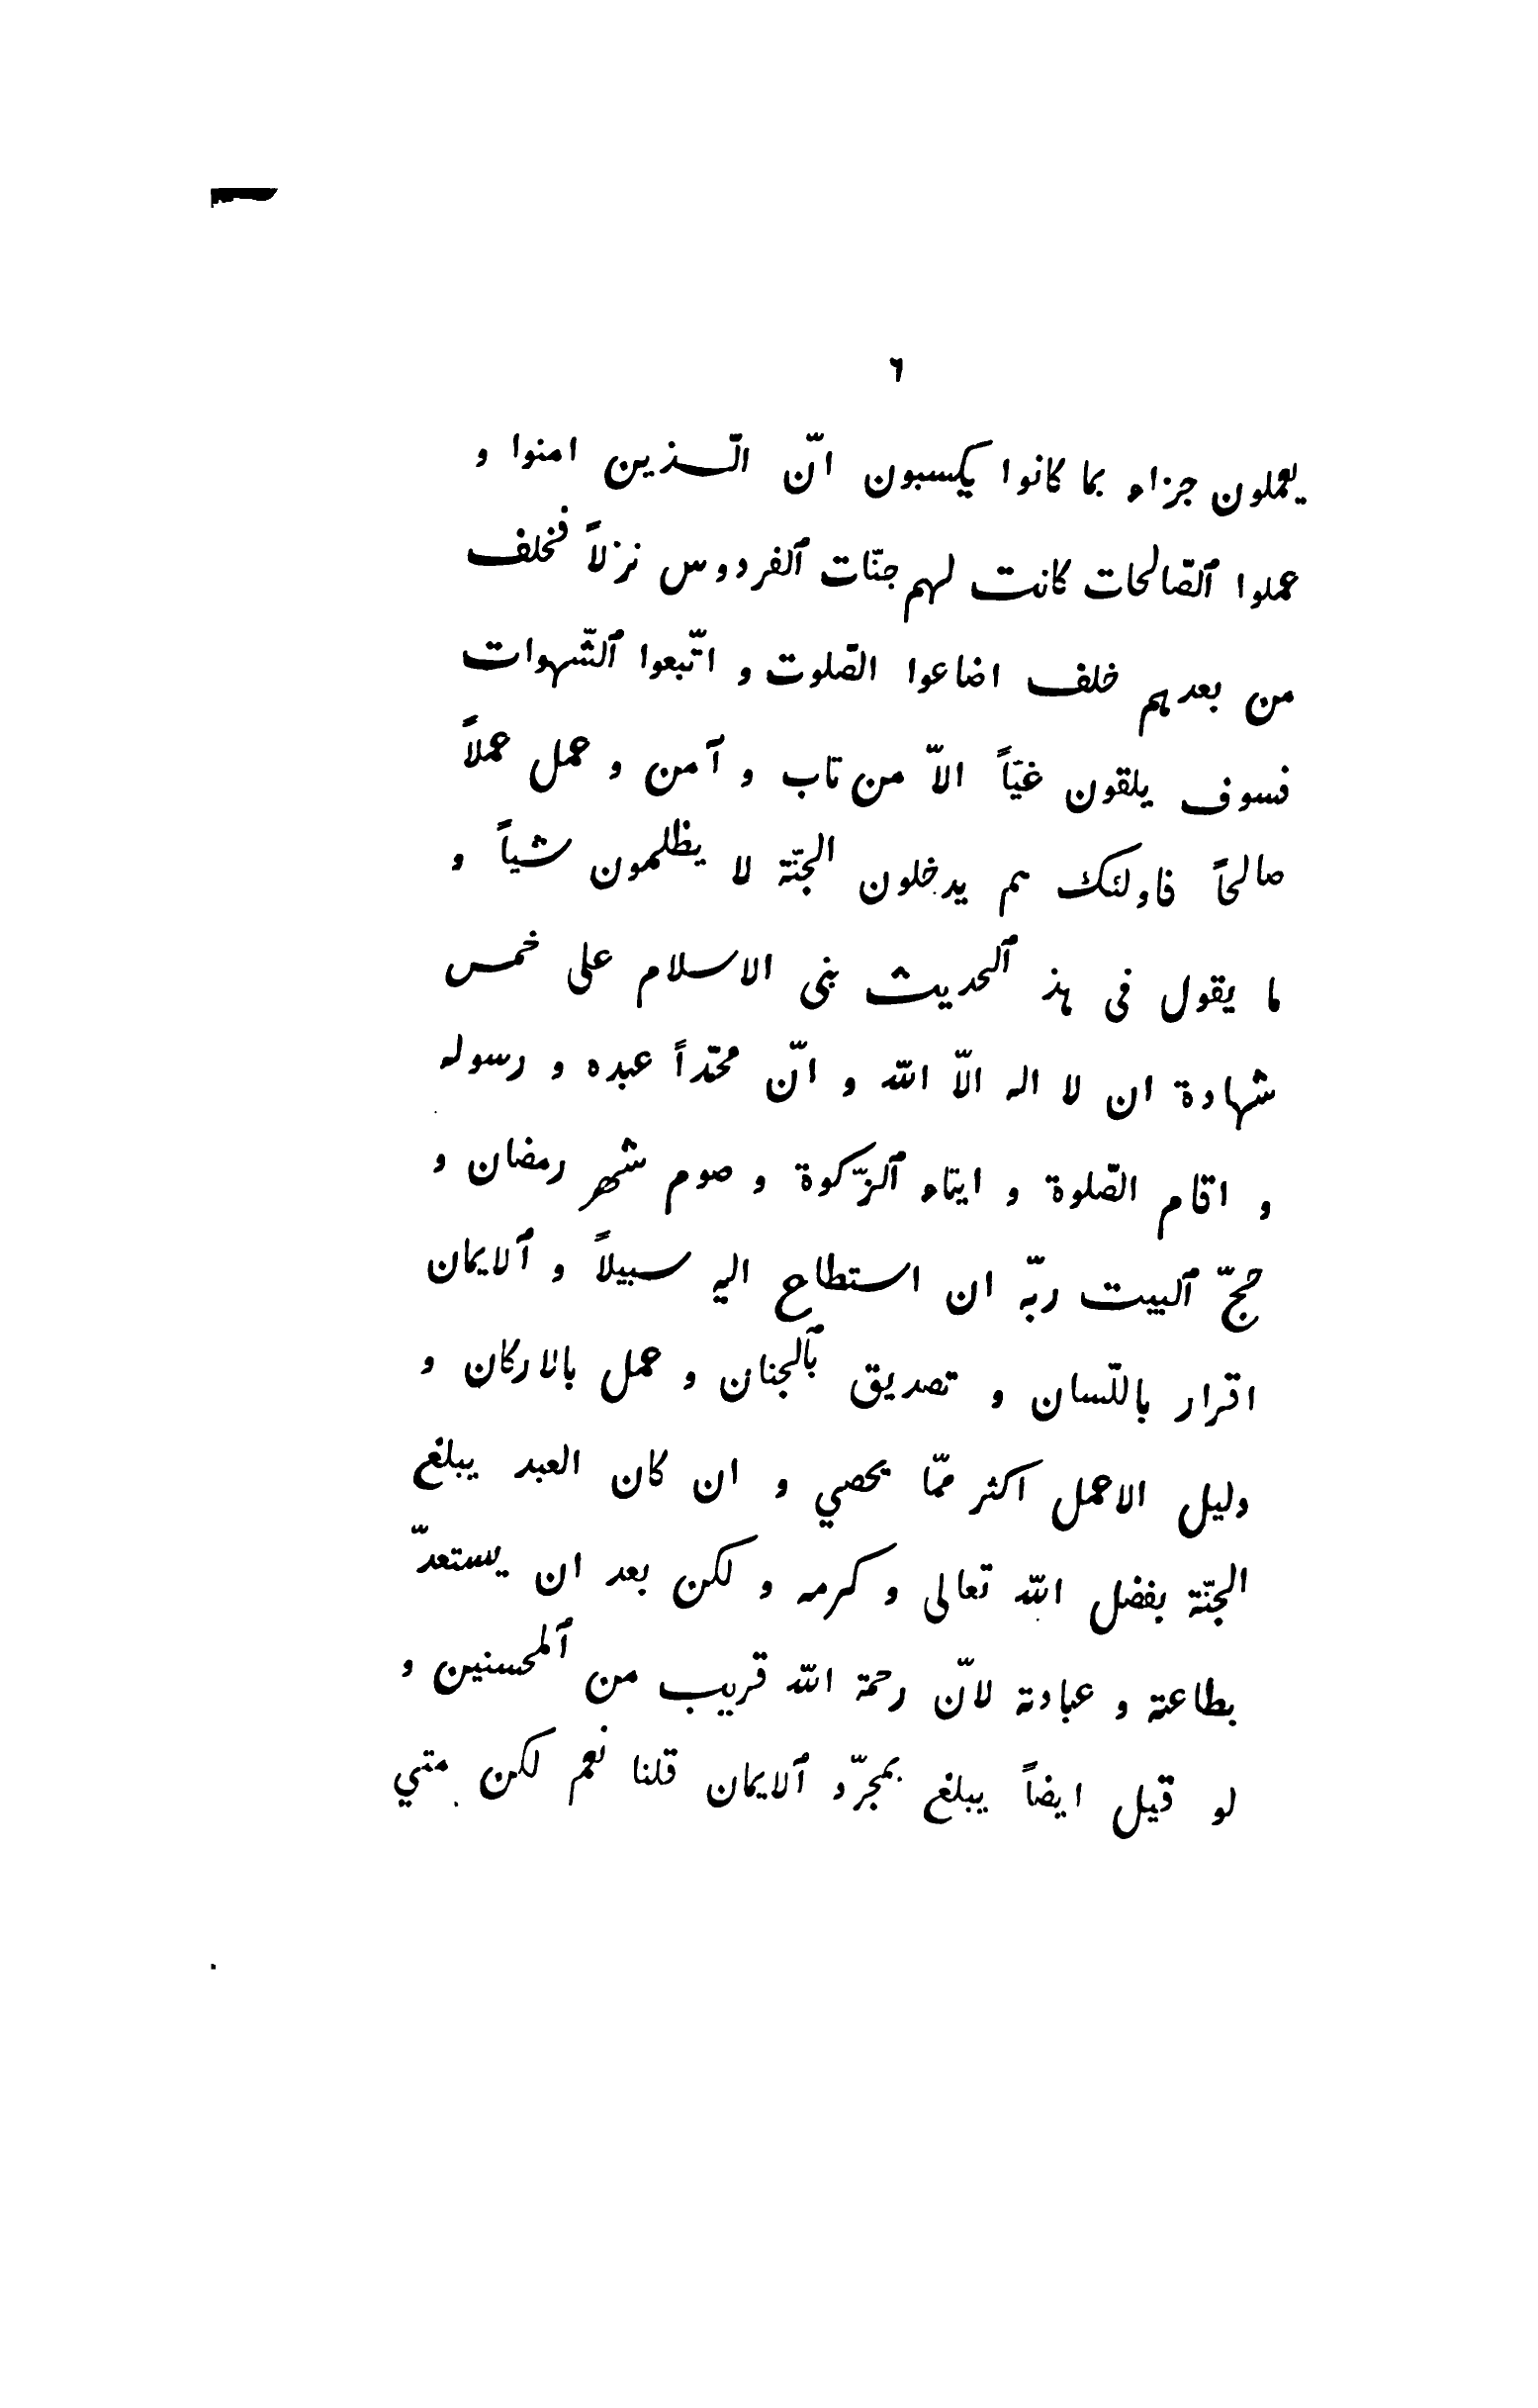 ٦
يعملون جزاء بما كانوا يكسبون انّ الّذين امنوا و
عملوا ٱلصّالحات كانت لهم جنّات ٱلفردوس نزلاً فخلف
من بعدهم خلف اضاعوا الصّلوت و اتّبعوا ٱلشّهوات
فسوف يلقون غيّاً الاّ من تاب و آمن و عمل عملاً
صالحاً فاولئك هم يدخلون الجنّة لا يظلمون شياً و
ما يقول فى هذ ٱلحديث بنى الاسلام على خمس
شهادة ان لا اله الاّ الله و انّ محمّداً عبده و رسوله
و اقام الصّلوة و ايتاء ٱلزّكوة و صوم شهر رمضان و
حجّ ٱلبيت ربّه ان استطاع اليه سبيلاً و ٱلايمان
اقرار باللّسان و تصديق بٱلجنان و عمل بالاركان و
دليل الاعمل اكثر ممّا يحصي و ان كان العبد يبلغ
الجنّة بفضل الله تعالى و كرمه و لكن بعد ان يستعدّ
بطاعته و عبادته لانّ رحمة الله قريب من ٱلمحسنين و
لو قيل ايضاً يبلغ بمجرّد ٱلايمان قلنا نعم لكن متي